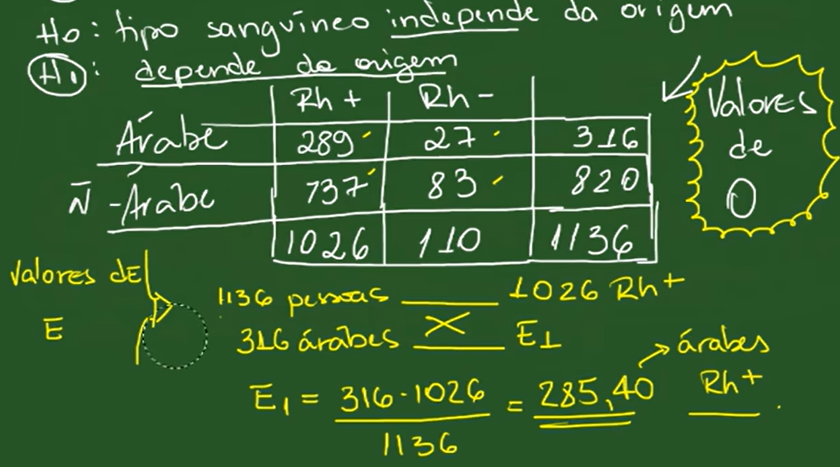 Ho: tipo sanguíneo independe da origem
H1: depende da origem
Rh+ Rh-
Árabe 289 27 316
Ñ-Árabe 737 83 820
1026 110 1136
Valores
de
O
Valores de
E
1136 pessoas ____ 1026 Rh+
316 árabes ____ E1
E1 = 316·1026 / 1136 = 285,40 → árabes Rh+.